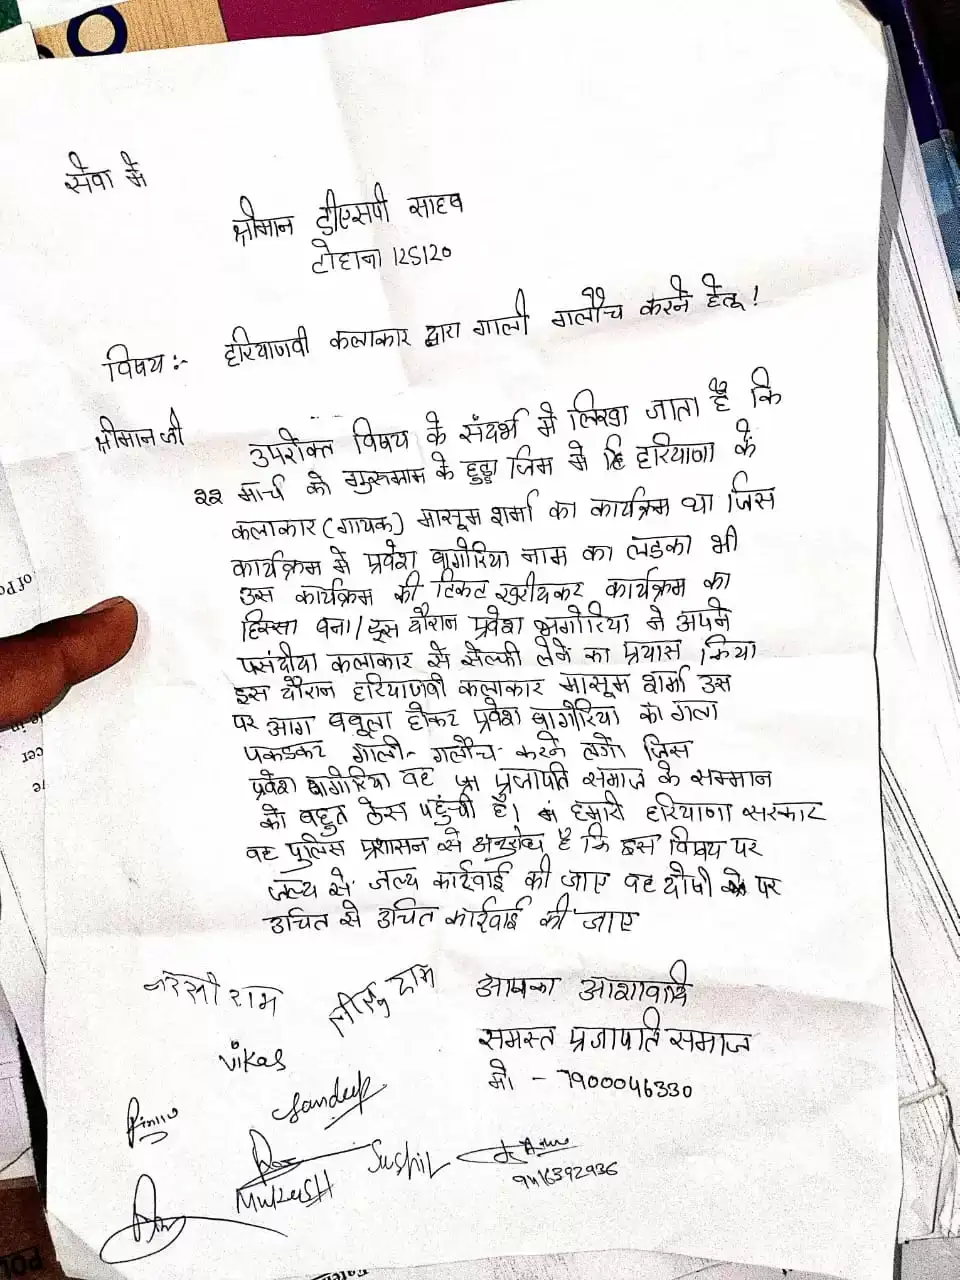 सेवा मे
श्रीमान डीएसपी साहब
टोहाना 125120
विषय :- हरियाणवी कलाकार द्वारा गाली गलौच करने हेतू !
श्रीमान जी
उपरोक्त विषय के संदर्भ मे लिखा जाता है कि
22 मार्च को गुरुग्राम के हुड्डा जिम मे हरियाणा के
कलाकार (गायक) मासूम शर्मा का कार्यक्रम था जिस
कार्यक्रम मे प्रवेश बागोरिया नाम का लडका भी
उस कार्यक्रम की टिकट खरीदकर कार्यक्रम का
हिस्सा बना / इस दौरान प्रवेश बागोरिया ने अपने
पसंदीदा कलाकार से सेल्फी लेने का प्रयास किया
इस दौरान हरियाणवी कलाकार मासूम शर्मा उस
पर आग बबूला होकर प्रवेश बागोरिया का गला
पकडकर गाली-गलौच करने लगे जिस
प्रवेश बागोरिया वह प्रजापति समाज के सम्मान
को बहुत ठेस पहुंची है। हमारी हरियाणा सरकार
वह पुलिस प्रशासन से अनुरोध है कि इस विषय पर
जल्द से जल्द कार्रवाई की जाए वह दोषी पर
उचित से उचित कार्रवाई की जाए
आपका आशावादि
समस्त प्रजापति समाज
मो - 7900046330
राम
राम
Vikas
Sandeep
Sushil
MUKESH
9416392936